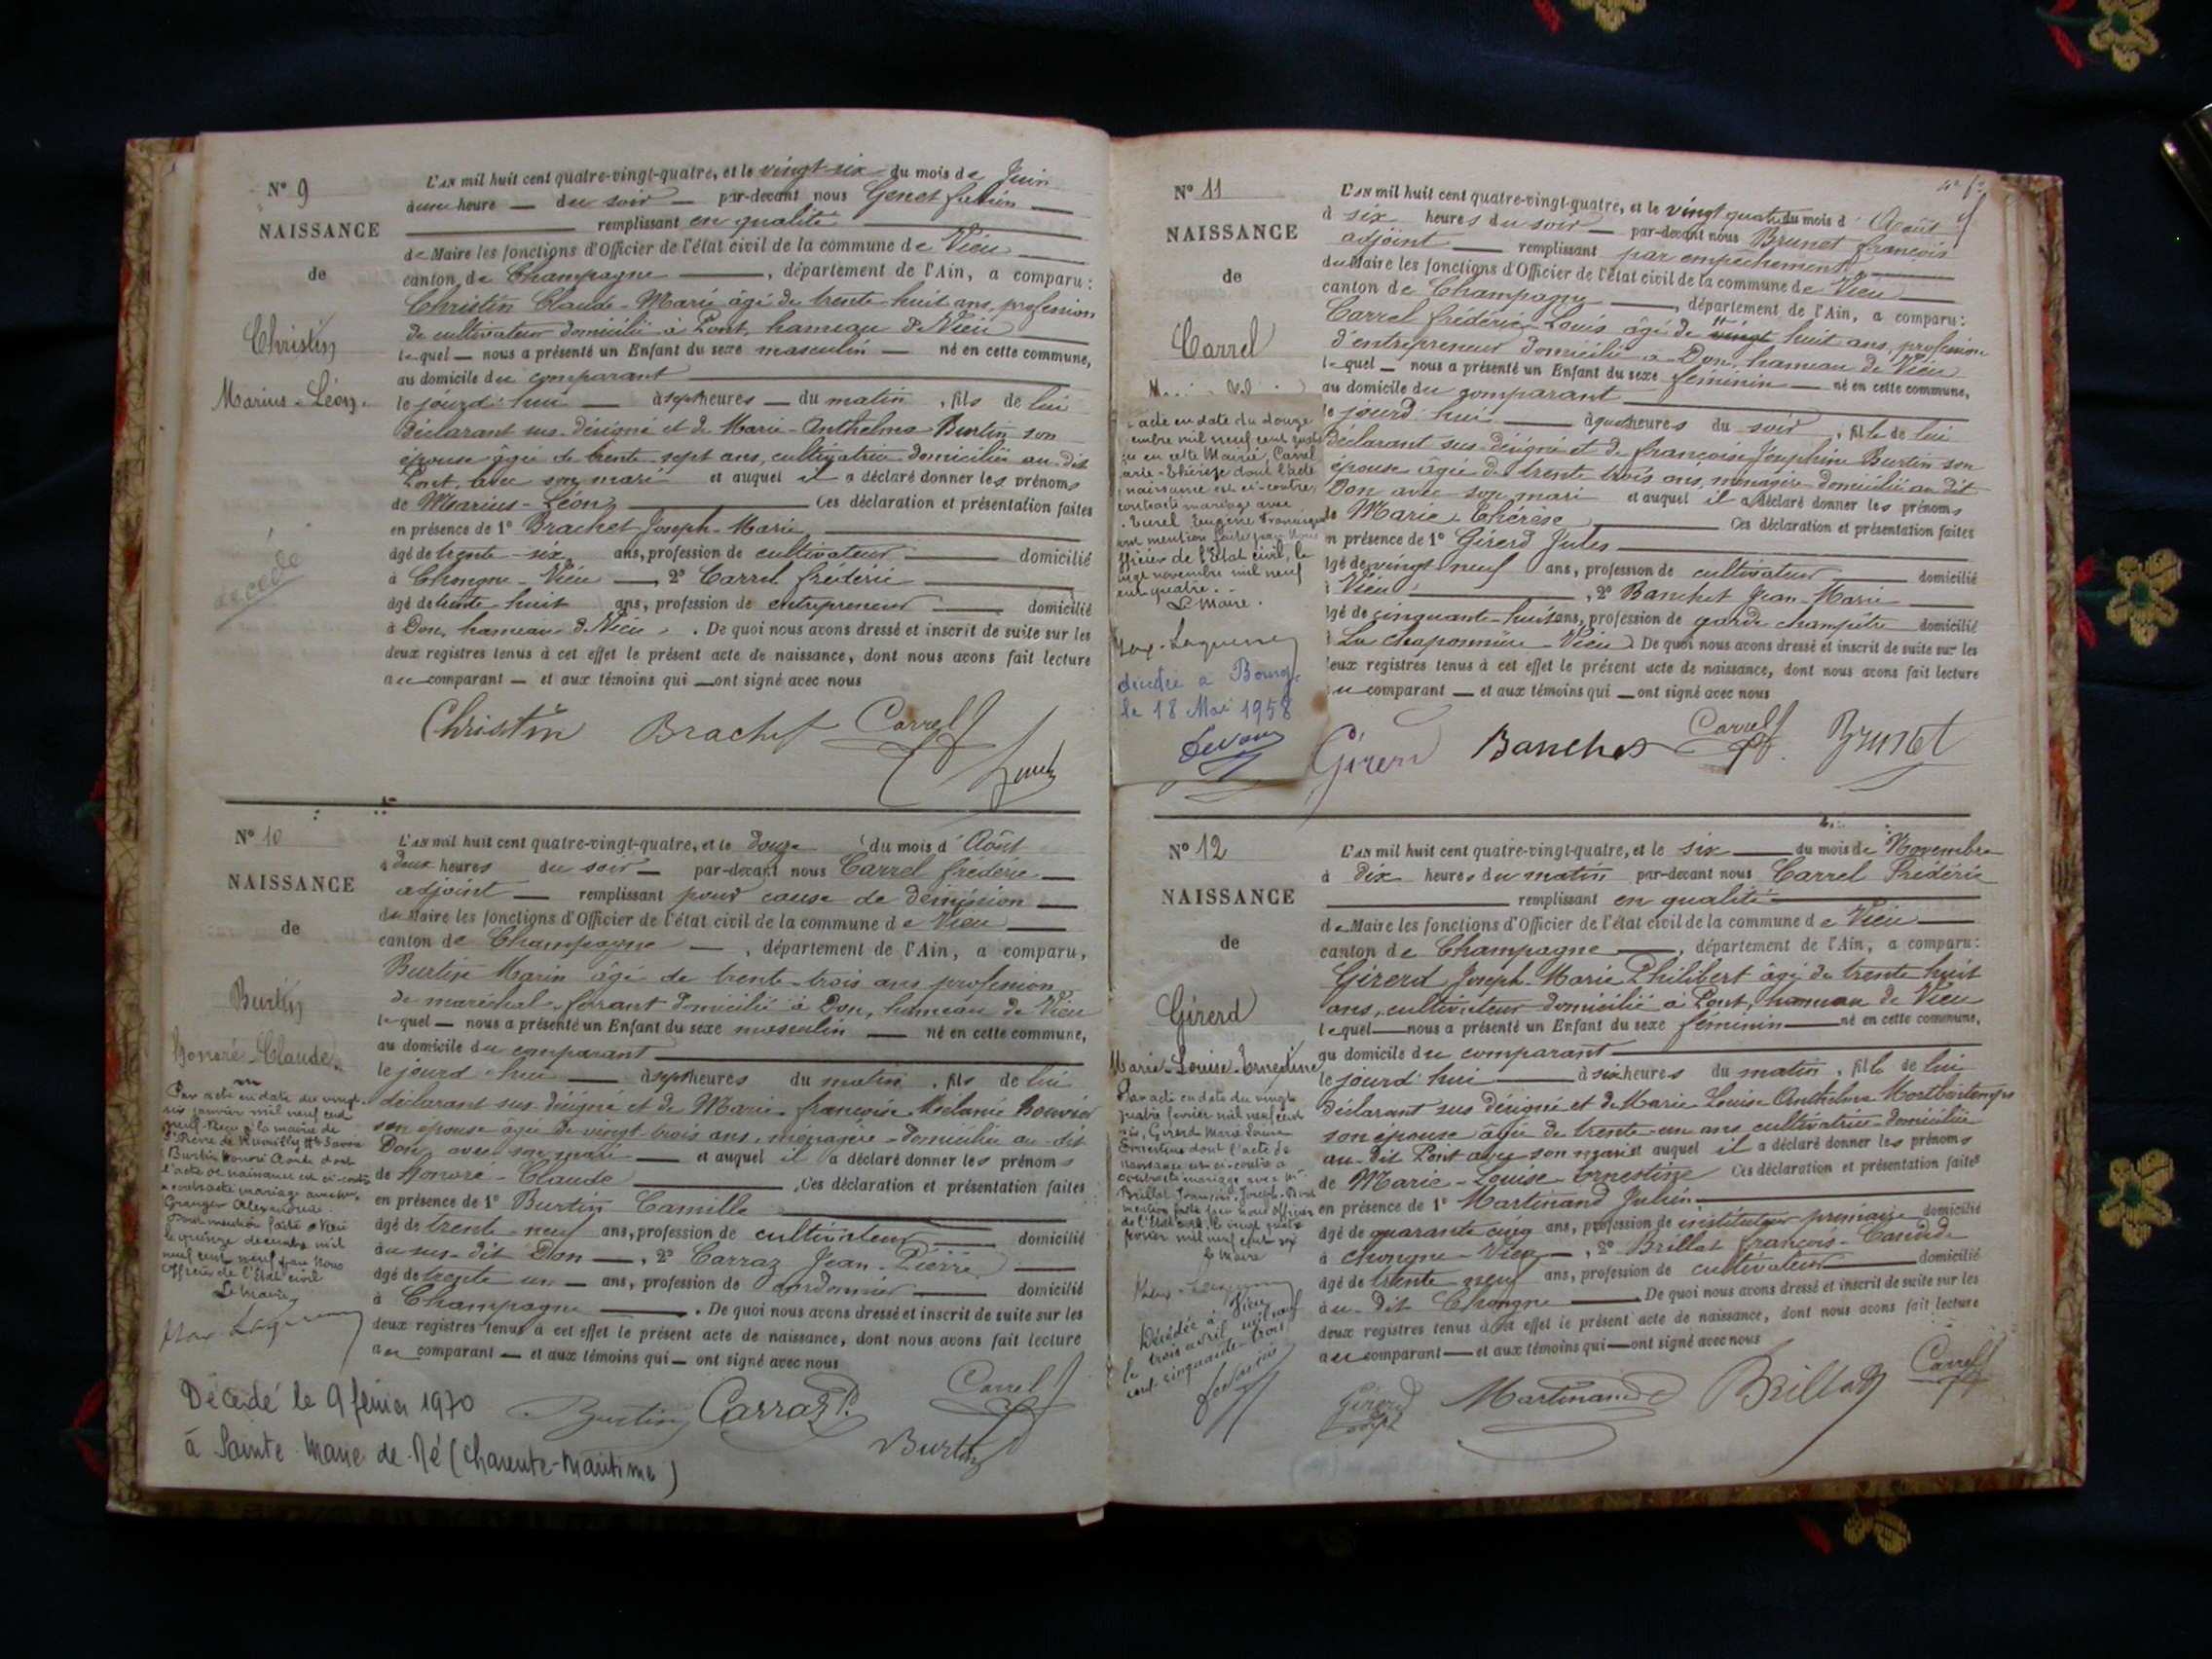 N° 9
NAISSANCE
de
Christin
Marius-Léon.
décédé
L'AN mil huit cent quatre-vingt-quatre, et le vingt-six du mois de Juin
heure — du soir — par-devant nous Genet
remplissant en qualité
de Maire les fonctions d'Officier de l'état civil de la commune de Vieu
canton de Champagne —, département de l'Ain, a comparu:
Christin Claude-Marie âgé de trente-huit ans, profession
de cultivateur domicilié à Pont, hameau de Vieu
lequel — nous a présenté un Enfant du sexe masculin — né en cette commune,
au domicile du comparant
le jourd'hui — à sept heures — du matin, fils de lui
déclarant sus-désigné et de Marie-Anthelma Burtin son
épouse âgée de trente-sept ans, cultivatrice domiciliée au-dit
Pont, avec son mari et auquel il a déclaré donner les prénoms
de Marius-Léon — Ces déclaration et présentation faites
en présence de 1° Brachet Joseph-Marie
âgé de trente-six ans, profession de cultivateur — domicilié
à Chongne-Vieu —, 2° Carrel frédéric
âgé de trente huit ans, profession de entrepreneur — domicilié
à Don, hameau de Vieu. De quoi nous avons dressé et inscrit de suite sur les
deux registres tenus à cet effet le présent acte de naissance, dont nous avons fait lecture
au comparant — et aux témoins qui — ont signé avec nous
Christin Brachet Carrel
N° 10
NAISSANCE
de
Burtin
Honoré-Claude.
Par acte en date du vingt-
six janvier mil neuf cent
neuf reçu à la mairie de
St Pierre de Rumilly Hte Savoie
Burtin Honoré Claude dont
l'acte de naissance est ci-contre
a contracté mariage avec
Granger Alexandrine.
Dont mention faite à Vieu
le quinze décembre mil
neuf cent neuf par Nous
officier de l'État civil
Le Maire
Décédé le 9 février 1970
à Sainte-Marie-de-Ré (Charente-Maritime)
L'AN mil huit cent quatre-vingt-quatre, et le douze du mois d'Août
à deux heures du soir — par-devant nous Carrel frédéric —
adjoint — remplissant pour cause de démission —
du Maire les fonctions d'Officier de l'état civil de la commune de Vieu —
canton de Champagne —, département de l'Ain, a comparu,
Burtin Marin âgé de trente-trois ans profession
de maréchal-ferrant domicilié à Don, hameau de Vieu
lequel — nous a présenté un Enfant du sexe masculin — né en cette commune,
au domicile du comparant
le jourd'hui — à sept heures du matin, fils de lui
déclarant sus-désigné et de Marie-françoise Mélanie Bouvier
son épouse âgée de vingt-trois ans, ménagère-domiciliée au-dit
Don, avec son mari — et auquel il a déclaré donner les prénoms
de Honoré-Claude — Ces déclaration et présentation faites
en présence de 1° Burtin Camille
âgé de trente-neuf ans, profession de cultivateur — domicilié
au sus-dit Don —, 2° Carraz Jean-Pierre
âgé de trente un — ans, profession de cordonnier — domicilié
à Champagne —. De quoi nous avons dressé et inscrit de suite sur les
deux registres tenus à cet effet le présent acte de naissance, dont nous avons fait lecture
au comparant — et aux témoins qui — ont signé avec nous
Burtin Carraz P. Carrel
Burtin
N° 11
NAISSANCE
de
Carrel
acte en date du douze
embre mil neuf cent quatre
en cette Mairie, Carrel
arie-Thérèse dont l'acte
naissance est ci-contre,
contracté mariage avec
Eugène
ont mention faite par Nous
officier de l'État civil, le
novembre mil neuf
cent quatre.
Le Maire.
décédée à Bourg
le 18 Mai 1958
L'AN mil huit cent quatre-vingt-quatre, et le vingt quatre du mois d'Août
à six heures du soir — par-devant nous Brunet françois
adjoint — remplissant par empêchement
du Maire les fonctions d'Officier de l'état civil de la commune de Vieu —
canton de Champagne —, département de l'Ain, a comparu:
Carrel frédéric-Louis âgé de vingt huit ans, profession
d'entrepreneur domicilié à Don, hameau de Vieu
lequel — nous a présenté un Enfant du sexe féminin — né en cette commune,
au domicile du comparant
le jourd'hui — à quatre heures du soir, fille de lui
déclarant sus-désigné et de françoise Joséphine Burtin son
épouse âgée de trente trois ans, ménagère domiciliée au dit
Don avec son mari et auquel il a déclaré donner les prénoms
de Marie-Thérèse — Ces déclaration et présentation faites
en présence de 1° Girerd Jules
âgé de vingt-neuf ans, profession de cultivateur — domicilié
à Vieu —, 2° Banchet Jean-Marie
âgé de cinquante-huit ans, profession de garde champêtre domicilié
à La chaponnière Vieu. De quoi nous avons dressé et inscrit de suite sur les
deux registres tenus à cet effet le présent acte de naissance, dont nous avons fait lecture
au comparant — et aux témoins qui — ont signé avec nous
Girerd Banchet Carrel Brunet
N° 12
NAISSANCE
de
Girerd
Marie-Louise-Ernestine
Par acte en date du vingt
quatre février mil neuf cent
six, Girerd Marie Louise
Ernestine dont l'acte de
naissance est ci-contre a
contracté mariage avec Mr
Brillat François-Joseph. Dont
mention faite par nous officier
de l'État civil le vingt quatre
février mil neuf cent six
Le Maire
Décédée à Vieu
le trois avril mil neuf
cent cinquante-trois
L'AN mil huit cent quatre-vingt-quatre, et le six — du mois de Novembre
à dix heures du matin par-devant nous Carrel Frédéric
remplissant en qualité
de Maire les fonctions d'Officier de l'état civil de la commune de Vieu —
canton de Champagne —, département de l'Ain, a comparu:
Girerd Joseph-Marie Philibert âgé de trente huit
ans, cultivateur domicilié à Pont, hameau de Vieu
lequel — nous a présenté un Enfant du sexe féminin — né en cette commune,
au domicile du comparant
le jourd'hui — à six heures du matin, fille de lui
déclarant sus désigné et de Marie Louise Anthelma Montbertemps
son épouse âgée de trente-un ans cultivatrice domiciliée
au-dit Pont avec son mari et auquel il a déclaré donner les prénoms
de Marie-Louise-Ernestine Ces déclaration et présentation faites
en présence de 1° Martinand Julien
âgé de quarante cinq ans, profession de instituteur primaire domicilié
à Chongne-Vieu —, 2° Brillat françois-Candide
âgé de trente neuf ans, profession de cultivateur — domicilié
au-dit Chongne — De quoi nous avons dressé et inscrit de suite sur les
deux registres tenus à cet effet le présent acte de naissance, dont nous avons fait lecture
au comparant — et aux témoins qui — ont signé avec nous
Girerd Joseph Martinand Brillat Carrel